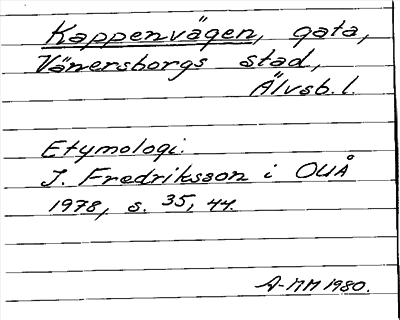 Kappenvägen, gata,
Vänersborgs stad,
Älvsb. l.
Etymologi:
I. Fredriksson i OUÅ
1978, s. 35, 44.
A-MM 1980.